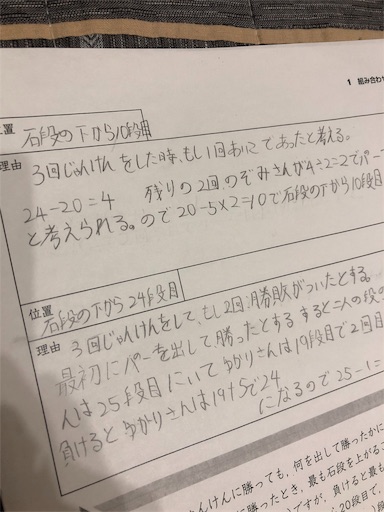 1 組み合わせ
位置
石段の下から10段目
理由
3回じゃんけんをした時、もし1回あいこであったと考える。
24-20=4 残りの2回のぞみさんが4÷2=2でパー
と考えられる。ので20-5×2=10で石段の下から10段目
位置
石段の下から24段目
理由
3回じゃんけんをして、もし2回勝敗がついたとする。
最初にパーを出して勝ったとする すると二人の段の
んは25段目にいて ゆかりさんは19段目で2回目
負けると ゆかりさんは19+5で24
になるので25-1=
んけんに勝っても、何を出して勝ったかに
勝ったとき、最も石段を上がるこ
ですが、負けると最も
20段目で、